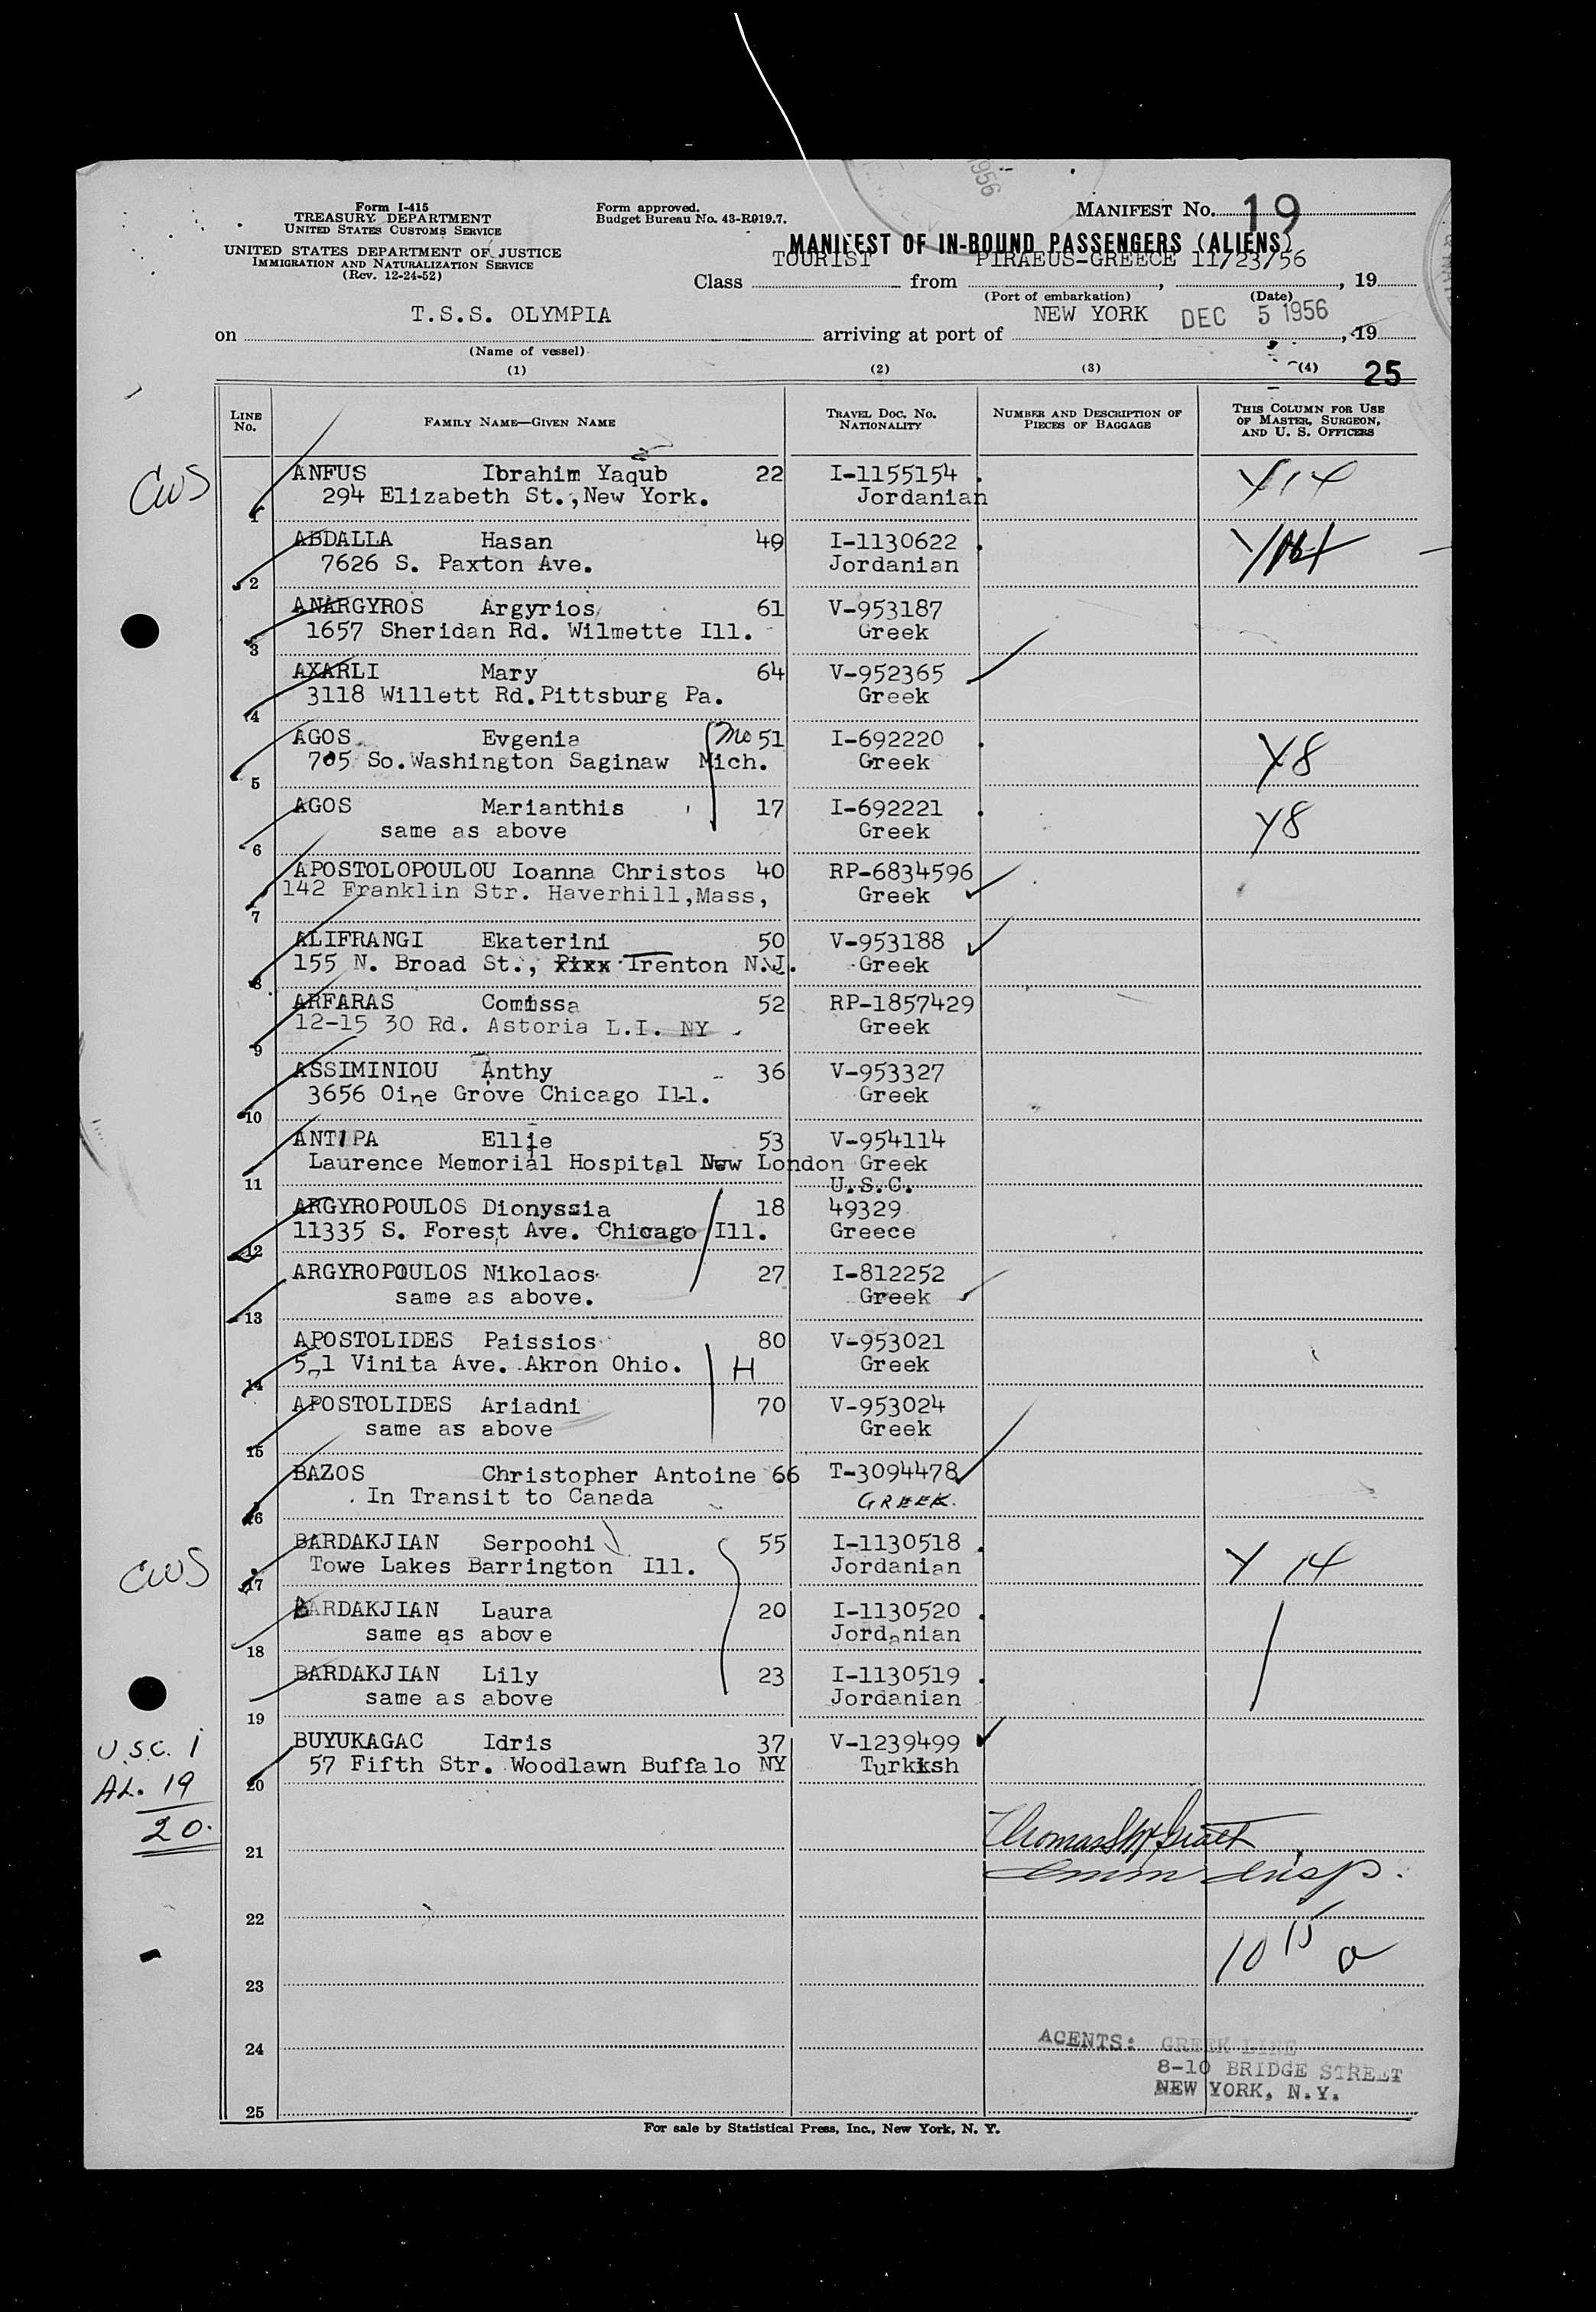 1956
Form I-415
TREASURY DEPARTMENT
UNITED STATES CUSTOMS SERVICE
UNITED STATES DEPARTMENT OF JUSTICE
IMMIGRATION AND NATURALIZATION SERVICE
(Rev. 12-24-52)
Form approved.
Budget Bureau No. 43-R019.7.
MANIFEST No. 19
MANIFEST OF IN-BOUND PASSENGERS (ALIENS)
Class TOURIST from PIRAEUS-GREECE 11/23/56, 19
(Port of embarkation) (Date)
on T.S.S. OLYMPIA arriving at port of NEW YORK DEC 5 1956, 19
(Name of vessel)
(1) (2) (3) (4) 25
LINE No. FAMILY NAME—GIVEN NAME TRAVEL DOC. NO. NATIONALITY NUMBER AND DESCRIPTION OF PIECES OF BAGGAGE THIS COLUMN FOR USE OF MASTER, SURGEON, AND U. S. OFFICERS
CWS
ANFUS Ibrahim Yaqub 22 I-1155154 Y14
1 294 Elizabeth St.,New York. Jordanian
ABDALLA Hasan 49 I-1130622
2 7626 S. Paxton Ave. Jordanian
ANARGYROS Argyrios 61 V-953187
3 1657 Sheridan Rd. Wilmette Ill. Greek
AXARLI Mary 64 V-952365
4 3118 Willett Rd.Pittsburg Pa. Greek
AGOS Evgenia Mo 51 I-692220 Y8
5 705 So.Washington Saginaw Mich. Greek
AGOS Marianthis 17 I-692221 Y8
6 same as above Greek
APOSTOLOPOULOU Ioanna Christos 40 RP-6834596
7 142 Franklin Str. Haverhill,Mass, Greek
ALIFRANGI Ekaterini 50 V-953188
8 155 N. Broad St., Trenton N.J. Greek
ARFARAS Comissa 52 RP-1857429
9 12-15 30 Rd. Astoria L.I. NY Greek
ASSIMINIOU Anthy 36 V-953327
10 3656 Oine Grove Chicago Ill. Greek
ANTIPA Ellie 53 V-954114
11 Laurence Memorial Hospital New London Greek
U.S.C.
ARGYROPOULOS Dionyssia 18 49329
12 11335 S. Forest Ave. Chicago Ill. Greece
ARGYROPOULOS Nikolaos 27 I-812252
13 same as above. Greek
APOSTOLIDES Paissios 80 V-953021
14 Vinita Ave. Akron Ohio. H Greek
APOSTOLIDES Ariadni 70 V-953024
15 same as above Greek
BAZOS Christopher Antoine 66 T-3094478
16 In Transit to Canada GREEK.
CWS
BARDAKJIAN Serpoohi 55 I-1130518 Y 14
17 Towe Lakes Barrington Ill. Jordanian
BARDAKJIAN Laura 20 I-1130520
18 same as above Jordanian
BARDAKJIAN Lily 23 I-1130519
19 same as above Jordanian
BUYUKAGAC Idris 37 V-1239499
20 57 Fifth Str. Woodlawn Buffalo NY Turkish
U.S.C. 1
AL. 19
20.
21
22
10 15 a
23
24
AGENTS: GREEK LINE
8-10 BRIDGE STREET
NEW YORK, N.Y.
25
For sale by Statistical Press, Inc., New York, N. Y.